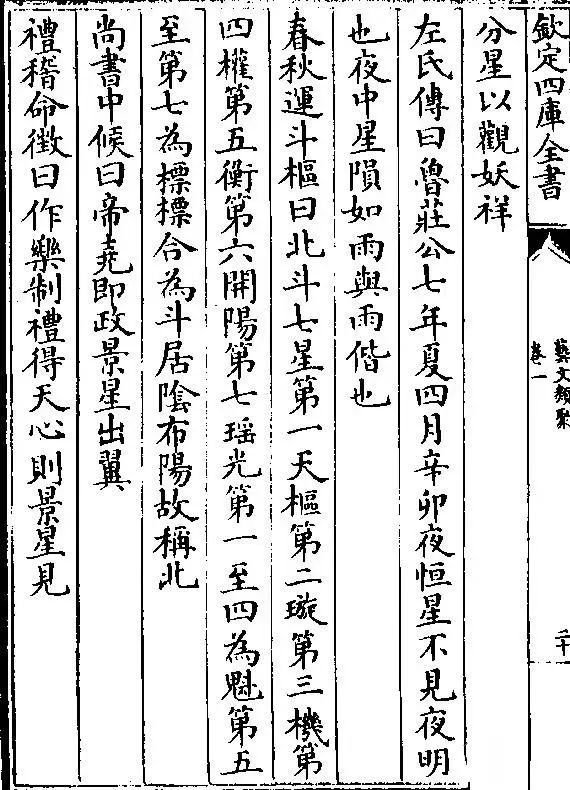 欽定四庫全書
藝文類聚
卷一
二十
分星以觀妖祥
左氏傳曰魯莊公七年夏四月辛卯夜恒星不見夜明
也夜中星隕如雨與雨偕也
春秋運斗樞曰北斗七星第一天樞第二璇第三機第
四權第五衡第六開陽第七瑤光第一至四為魁第五
至第七為標標合為斗居陰布陽故稱北
尚書中候曰帝堯即政景星出翼
禮稽命徵曰作樂制禮得天心則景星見